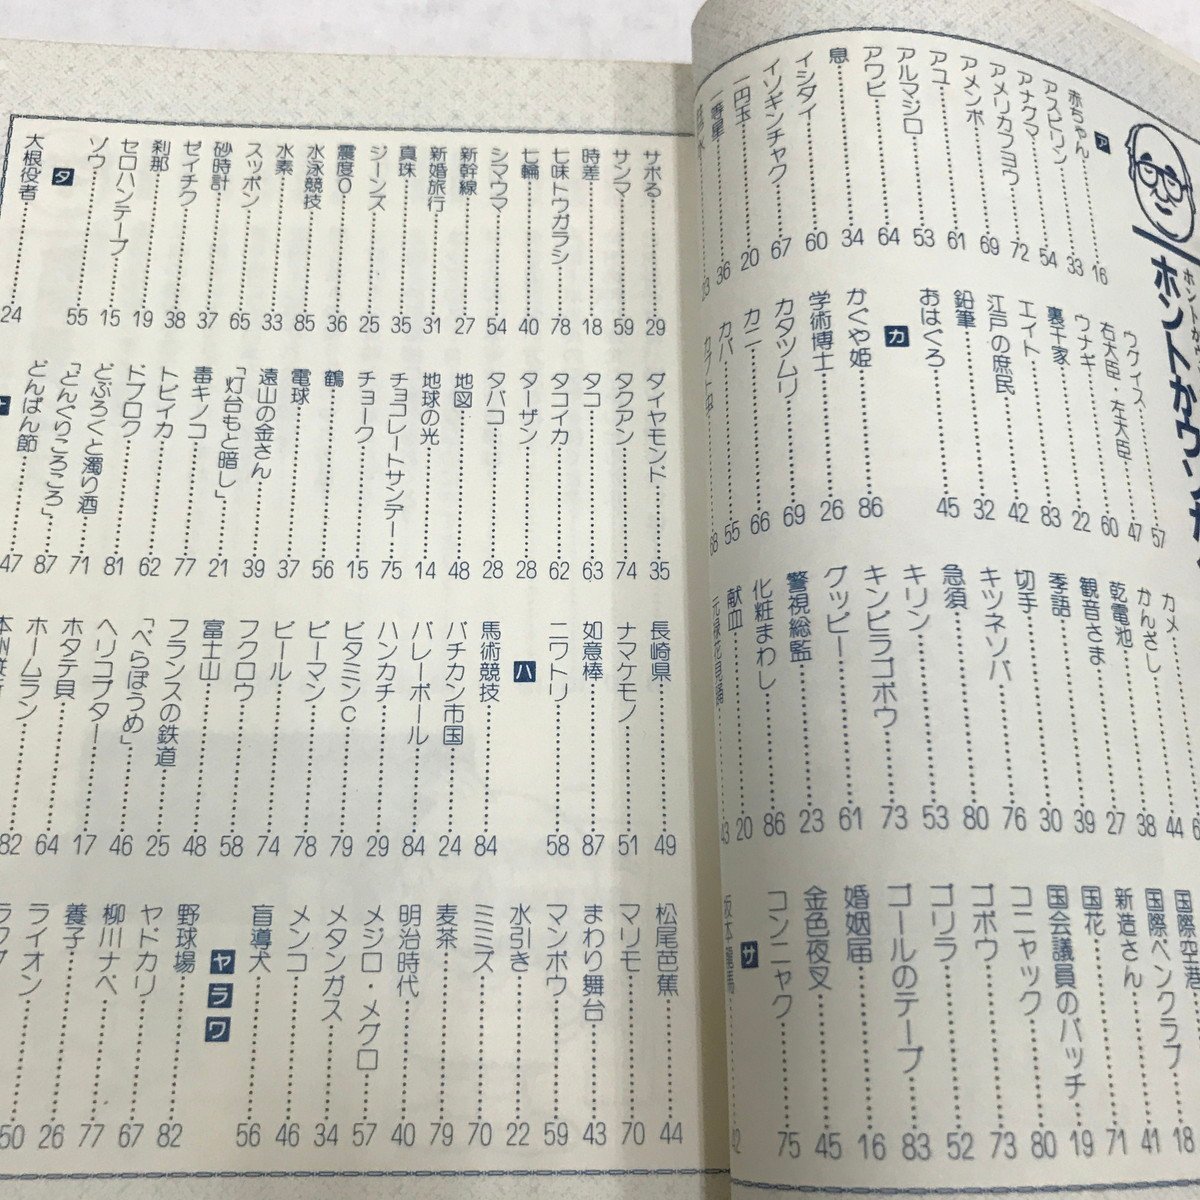 ア
赤ちゃん……16
アスピリン……33
アナグマ……54
アメリカフヨウ……72
アメンボ……69
アユ……61
アルマジロ……53
アワビ……64
息……34
イシダイ……60
イソギンチャク……67
一円玉……20
一番星……36
ウグイス……57
右大臣・左大臣……47
ウナギ……60
裏千家……22
エイト……83
江戸の庶民……42
鉛筆……32
おはぐろ……45
カ
かぐや姫……86
学術博士……26
カタツムリ……69
カニ……66
カバ……55
カメ……
かんざし……44
乾電池……38
観音さま……27
季語……39
切手……30
キツネソバ……76
急須……80
キリン……53
キンピラゴボウ……73
グッピー……61
警視総監……23
化粧まわし……86
献血……20
元禄花見踊……43
国際空港
国際ペンクラブ……18
新造さん……41
国花……71
国会議員のバッチ……19
コニャック……80
ゴボウ……73
ゴリラ……52
ゴールのテープ……83
婚姻届……16
金色夜叉……45
コンニャク……75
サ
坂本龍馬……42
サボる……29
サンマ……59
時差……18
七味トウガラシ……78
七輪……40
シマウマ……54
新幹線……27
新婚旅行……31
真珠……35
ジーンズ……25
震度0……36
水泳競技……85
水素……33
スッポン……65
砂時計……37
ゼイチク……38
刹那……19
セロハンテープ……15
ゾウ……55
タ
大根役者……24
ダイヤモンド……35
タクアン……74
タコ……63
タコイカ……62
ターザン……28
タバコ……28
地図……48
地球の光……14
チョコレートサンデー……75
チョーク……15
鶴……56
電球……37
遠山の金さん……39
「灯台もと暗し」……21
毒キノコ……77
トビイカ……62
ドブロク……81
どぶろくと濁り酒……71
「どんぐりころころ」……87
どんぱん節……47
長崎県……49
ナマケモノ……51
如意棒……87
ニワトリ……58
ハ
馬術競技……84
バチカン市国……24
バレーボール……84
ハンカチ……29
ビタミンC……79
ピーマン……78
ビール……74
フクロウ……58
富士山……48
フランスの鉄道……25
「べらぼうめ」……46
ヘリコプター……17
ホタテ貝……64
ホームラン……82
松尾芭蕉……44
マリモ……70
まわり舞台……43
マンボウ……59
水引き……22
ミミズ……70
麦茶……79
明治時代……40
メジロ メグロ……57
メタンガス……34
メンコ……46
盲導犬……56
ヤラワ
野球場……82
ヤドカリ……67
柳川ナベ……77
養子……26
ライオン……50